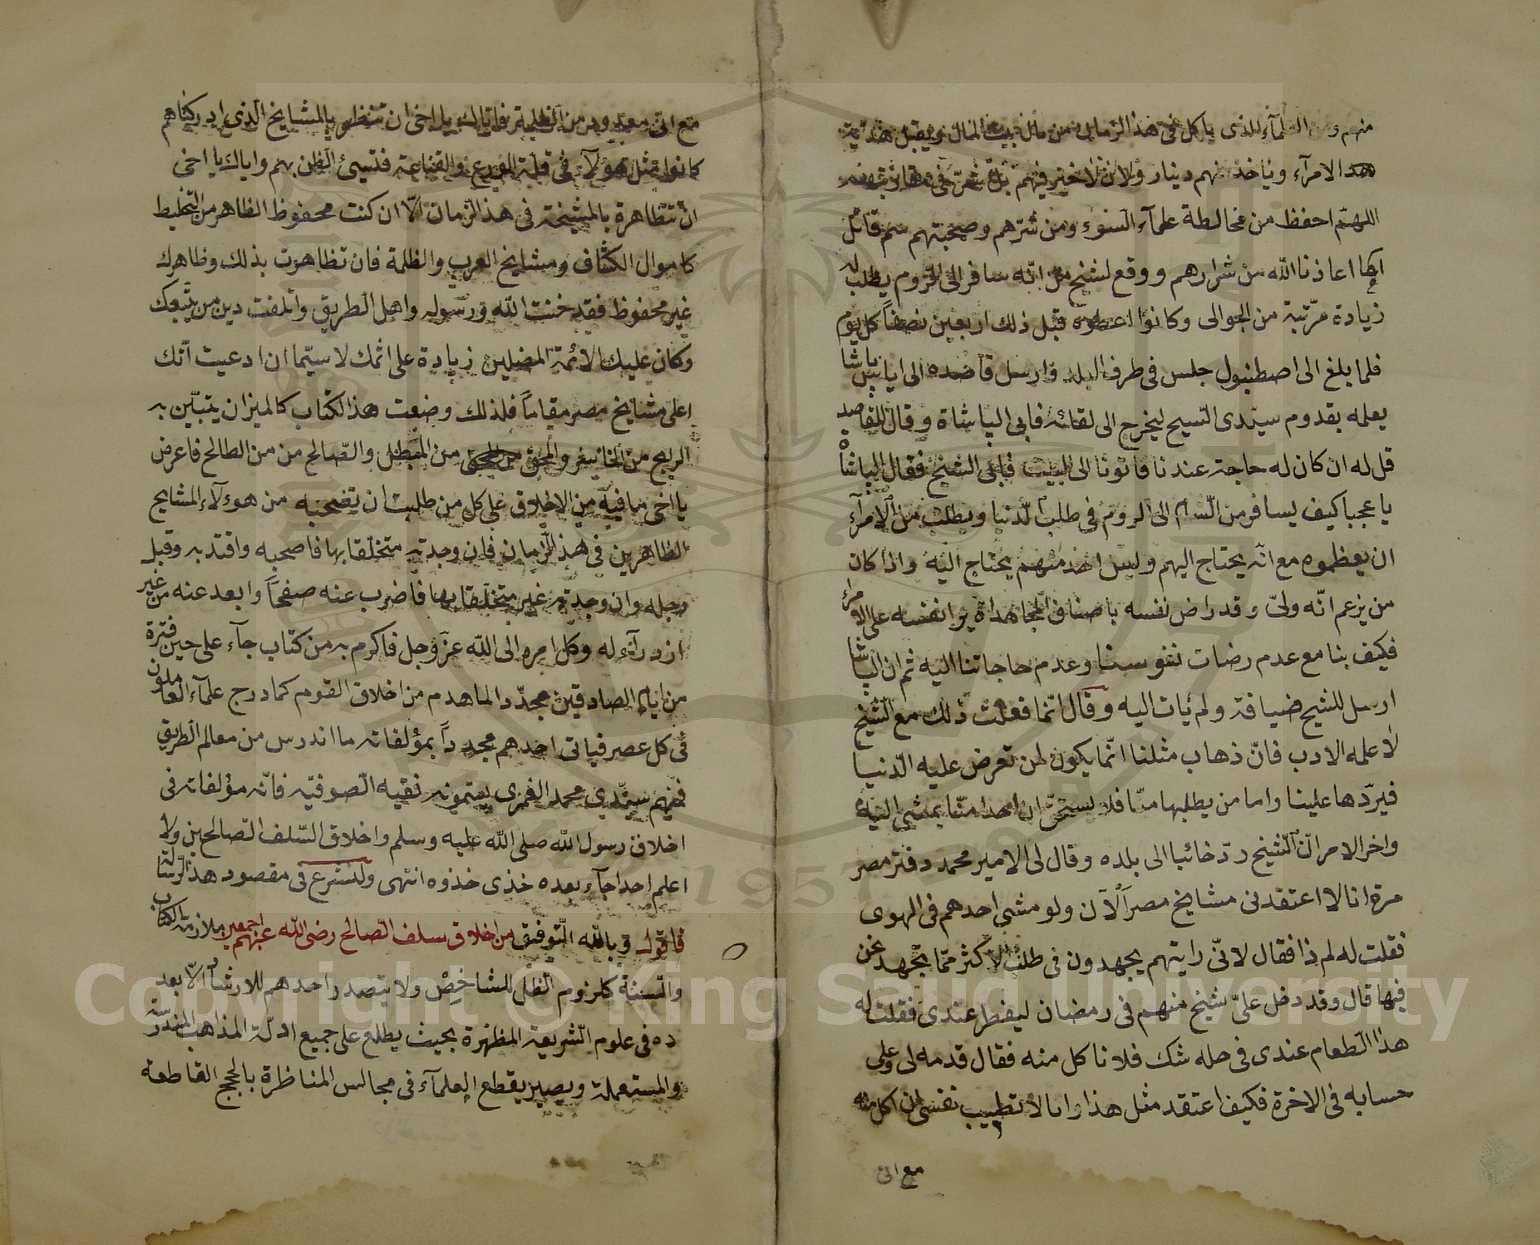 منهم ومن العلمآء الذى ياكل فى هذا الزمان من مال بيت المال ويقبل هدية
هذه الامرآء وياخذ منهم دينار ولان لاخير فيهم
اللهتم احفظ من مخالطة علمآء السوء ومن شرهم وصحبتهم سم قاتل
اعاذنا الله من شرارهم ووقع لشيخ انه سافر الى الروم يطلب له
زيادة مرتبة من الجوالى وكانوا اعطوه قبل ذلك اربعين نصفاً كل يوم
فلما بلغ الى اصطنبول جلس فى طرف البلد وارسل قاصده الى اياس باشا
يعلمه بقدوم سيدى الشيخ ليخرج الى لقائه فابى الباشاة وقال للقاصد
قل له ان كان له حاجة عندنا فاتونا الى البيت فابى الشيخ فقال الباشاة
يا عجبا كيف يسافر من الشام الى الروم فى طلب الدنيا ويطلب من الامرآء
ان يعظموه مع انه يحتاج اليهم وليس احد منهم يحتاج اليه واذا كان
من يزعم انه ولى وقد راض نفسه باصناف المجاهداة يرا نفسه على الامرآء
فكيف بنا مع عدم رضات نفوسنا وعدم حاجاتنا اليه ثم ان الباشا
ارسل للشيخ ضيافة ولم يأت اليه وقال انما فعلت ذلك مع الشيخ
لاعلمه الادب فان ذهاب مثلنا انما يكون لمن تعرض عليه الدنيا
فيردها علينا واما من يطلبها منا فلا يستحق ان احدا منا يمشى اليه
واخر الامر ان الشيخ رد خائبا الى بلده وقال لى الامير محمد دفتر مصر
مرة انا لا اعتقد فى مشايخ مصر الآن ولو مشى احدهم فى الهوى
فقلت له لم ذا فقال لانى رايتهم يجهدون فى طلب الاكثر مما يجهد غن
فيها قال وقد دخل على شيخ منهم فى رمضان ليفطر عندى فقلت له
هذا الطعام عندى فى حله شك فلا تاكل منه فقال قدمه لى وعلى
حسابه فى الاخرة فكيف اعتقد مثل هذا وانا لا تطيب نفسى ان اكل منه
مع انى
مع انى معدود من الظلمة فاياك يا اخى ان تنظر بالمشايخ الذى ادركناهم
كانوا مثل هؤلآء فى قلة الورع والقناعة فتسيئ الظن بهم واياك يا اخى
ان تتظاهرة بالمشيخة فى هذ الزمان الا ان كنت محفوظ الظاهر من التخليط
كاموال الكشاف ومشايخ العرب والظلمة فان تظاهرت بذلك وظاهرك
غير محفوظ فقد خنت الله ورسوله واهل الطريق واتلفت دين من يتبعك
وكان عليك الائمة المضلين زيادة على اثمك لاسيما ان ادعيت انك
اعلى مشايخ مصر مقاماً فلذلك وضعت هذ الكتاب كالميزان يتبين به
الربح من الخاسر والمحق من المبطل والصالح من من الطالح فاعرض
يا اخى ما فيه من الاخلاق على كل من طلبت ان تصحبه من هوءلآء المشايخ
الظاهرين فى هذ الزمان فان وجدته متخلقا بها فاصحبه واقتد به وقبل
رجله وان وجدته غير متخلقا بها فاضرب عنه صفحاً وابعد عنه من غير
ازدرآء له وكل امره الى الله عز وجل فاكرم به من كتاب جآء على حين فترة
من ايام الصادقين مجدد الما هدم من اخلاق القوم كما درج علمآء العاملون
فى كل عصر فياتى احدهم مجدداً بمؤلفاته ما اندرس من معالم الطريق
فمنهم سيدي محمد الغمرى يسمونه فقيه الصوفيه فانه مؤلفاته فى
اخلاق رسول الله صلى الله عليه وسلم واخلاق السلف الصالحين ولا
اعلم احدا جآء بعده خذى خذوه انتهى ولنشرع فى مقصود هذ الرسالة
فاقول وبالله التوفيق من اخلاق سلف الصالح رضى الله عنهم اجمعين ملازمة الكتاب
والسنة كلزوم الظل للشاخص ولا يتصدر احدهم للارشاد الا بعد
ده فى علوم الشريعة المطهرة بحيث يطلع على جميع ادلة المذاهب المندرسة
والمستعملة ويصير يقطع العلمآء فى مجالس المناظرة بالحجج القاطعة
1957
Copyright © King Saud University